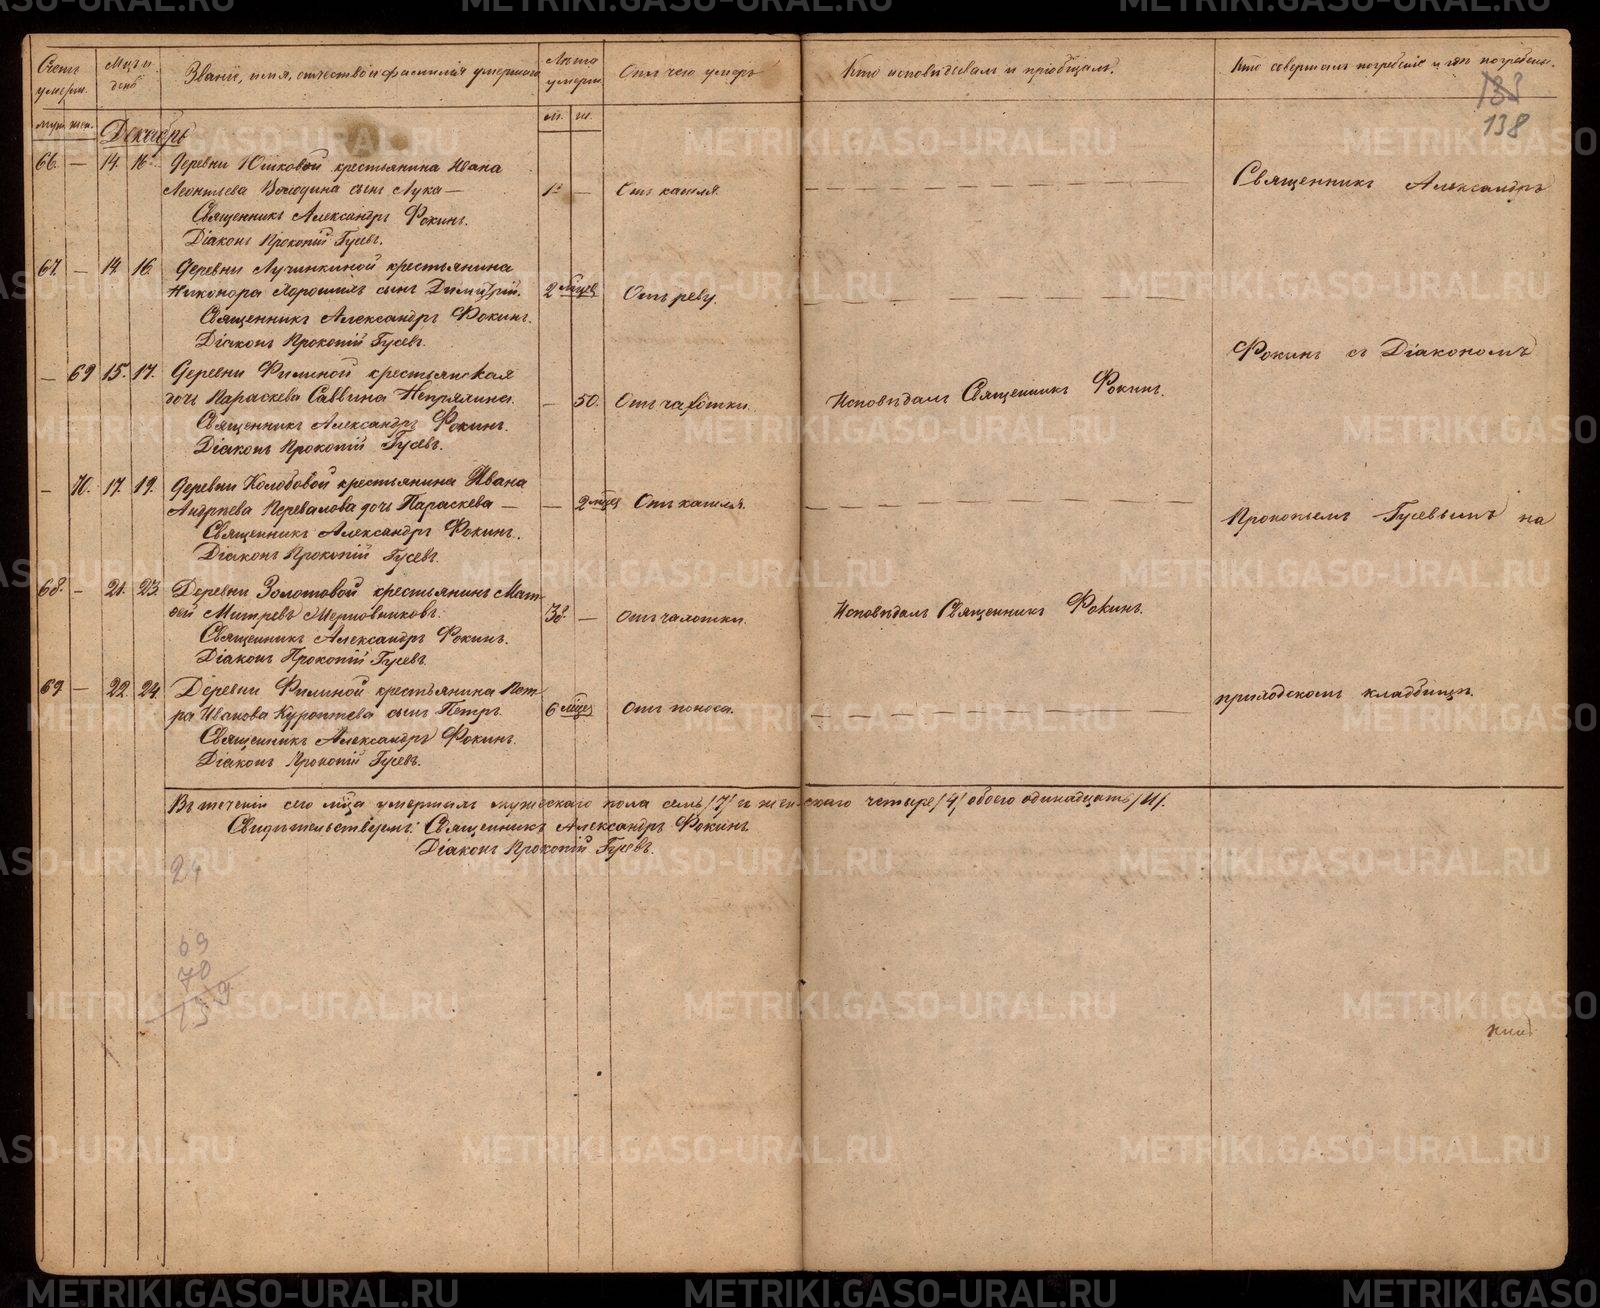 Счетъ умерш.
Мцъ и день
Званіе, имя, отчество и фамилія умершаго
Лѣта умерш.
Отъ чего умеръ
Кто исповѣдывалъ и пріобщалъ.
Кто совершалъ погребеніе и гдѣ погребены.
138
муж. жен.
м. ж.
Декабрь
66. — 14. 16. Деревни Юшковой крестьянина Ивана
Леонтьева сынъ Лука — 1 — Отъ кашля.
Священникъ Александръ Фокинъ.
Діаконъ Прокопій Гусевъ.
67. — 14. 16. Деревни Лучинкиной крестьянина
Никонора сынъ Димитрій. 2 мцев Отъ реву.
Священникъ Александръ Фокинъ.
Діаконъ Прокопій Гусевъ.
— 69 15. 17. Деревни Филиной крестьянская
дочь Параскева Саввина Непряхина. — 50. Отъ чахотки. Исповѣдалъ Священникъ Фокинъ.
Священникъ Александръ Фокинъ.
Діаконъ Прокопій Гусевъ.
— 70. 17. 19. Деревни Колобовой крестьянина Ивана
Андреева Перевалова дочь Параскева — — 2 мцев Отъ кашля.
Священникъ Александръ Фокинъ.
Діаконъ Прокопій Гусевъ.
68. — 21. 23. Деревни Золотовой крестьянинъ Мат-
вей Митревъ 38. — Отъ чахотки. Исповѣдалъ Священникъ Фокинъ.
Священникъ Александръ Фокинъ.
Діаконъ Прокопій Гусевъ.
69 — 22. 24. Деревни Филиной крестьянина Пет-
ра Иванова сынъ Петръ. 6 мцев Отъ поноса.
Священникъ Александръ Фокинъ.
Діаконъ Прокопій Гусевъ.
Священникъ Александръ
Фокинъ съ Діакономъ
Прокопьемъ Гусевымъ на
приходскомъ кладбищѣ.
Въ теченіи сего мца умершихъ мужескаго пола семь /7/ и женскаго четыре /4/ обоего одинадцать /11/.
Свидѣтельствуемъ: Священникъ Александръ Фокинъ
Діаконъ Прокопій Гусевъ.
24
69
70
139
METRIKI.GASO-URAL.RU